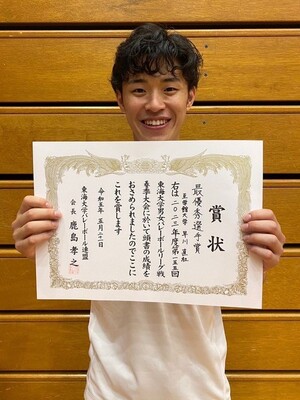 賞状
最優秀選手賞
早川直
右は二〇二三年度第一五五回
東海大学男女バレーボールリーグ戦
春季大会に於いて頭書の成績を
おさめられましたのでここに
これを賞します
令和五年五月二一日
東海大学バレーボール連盟
会長 鹿島孝之